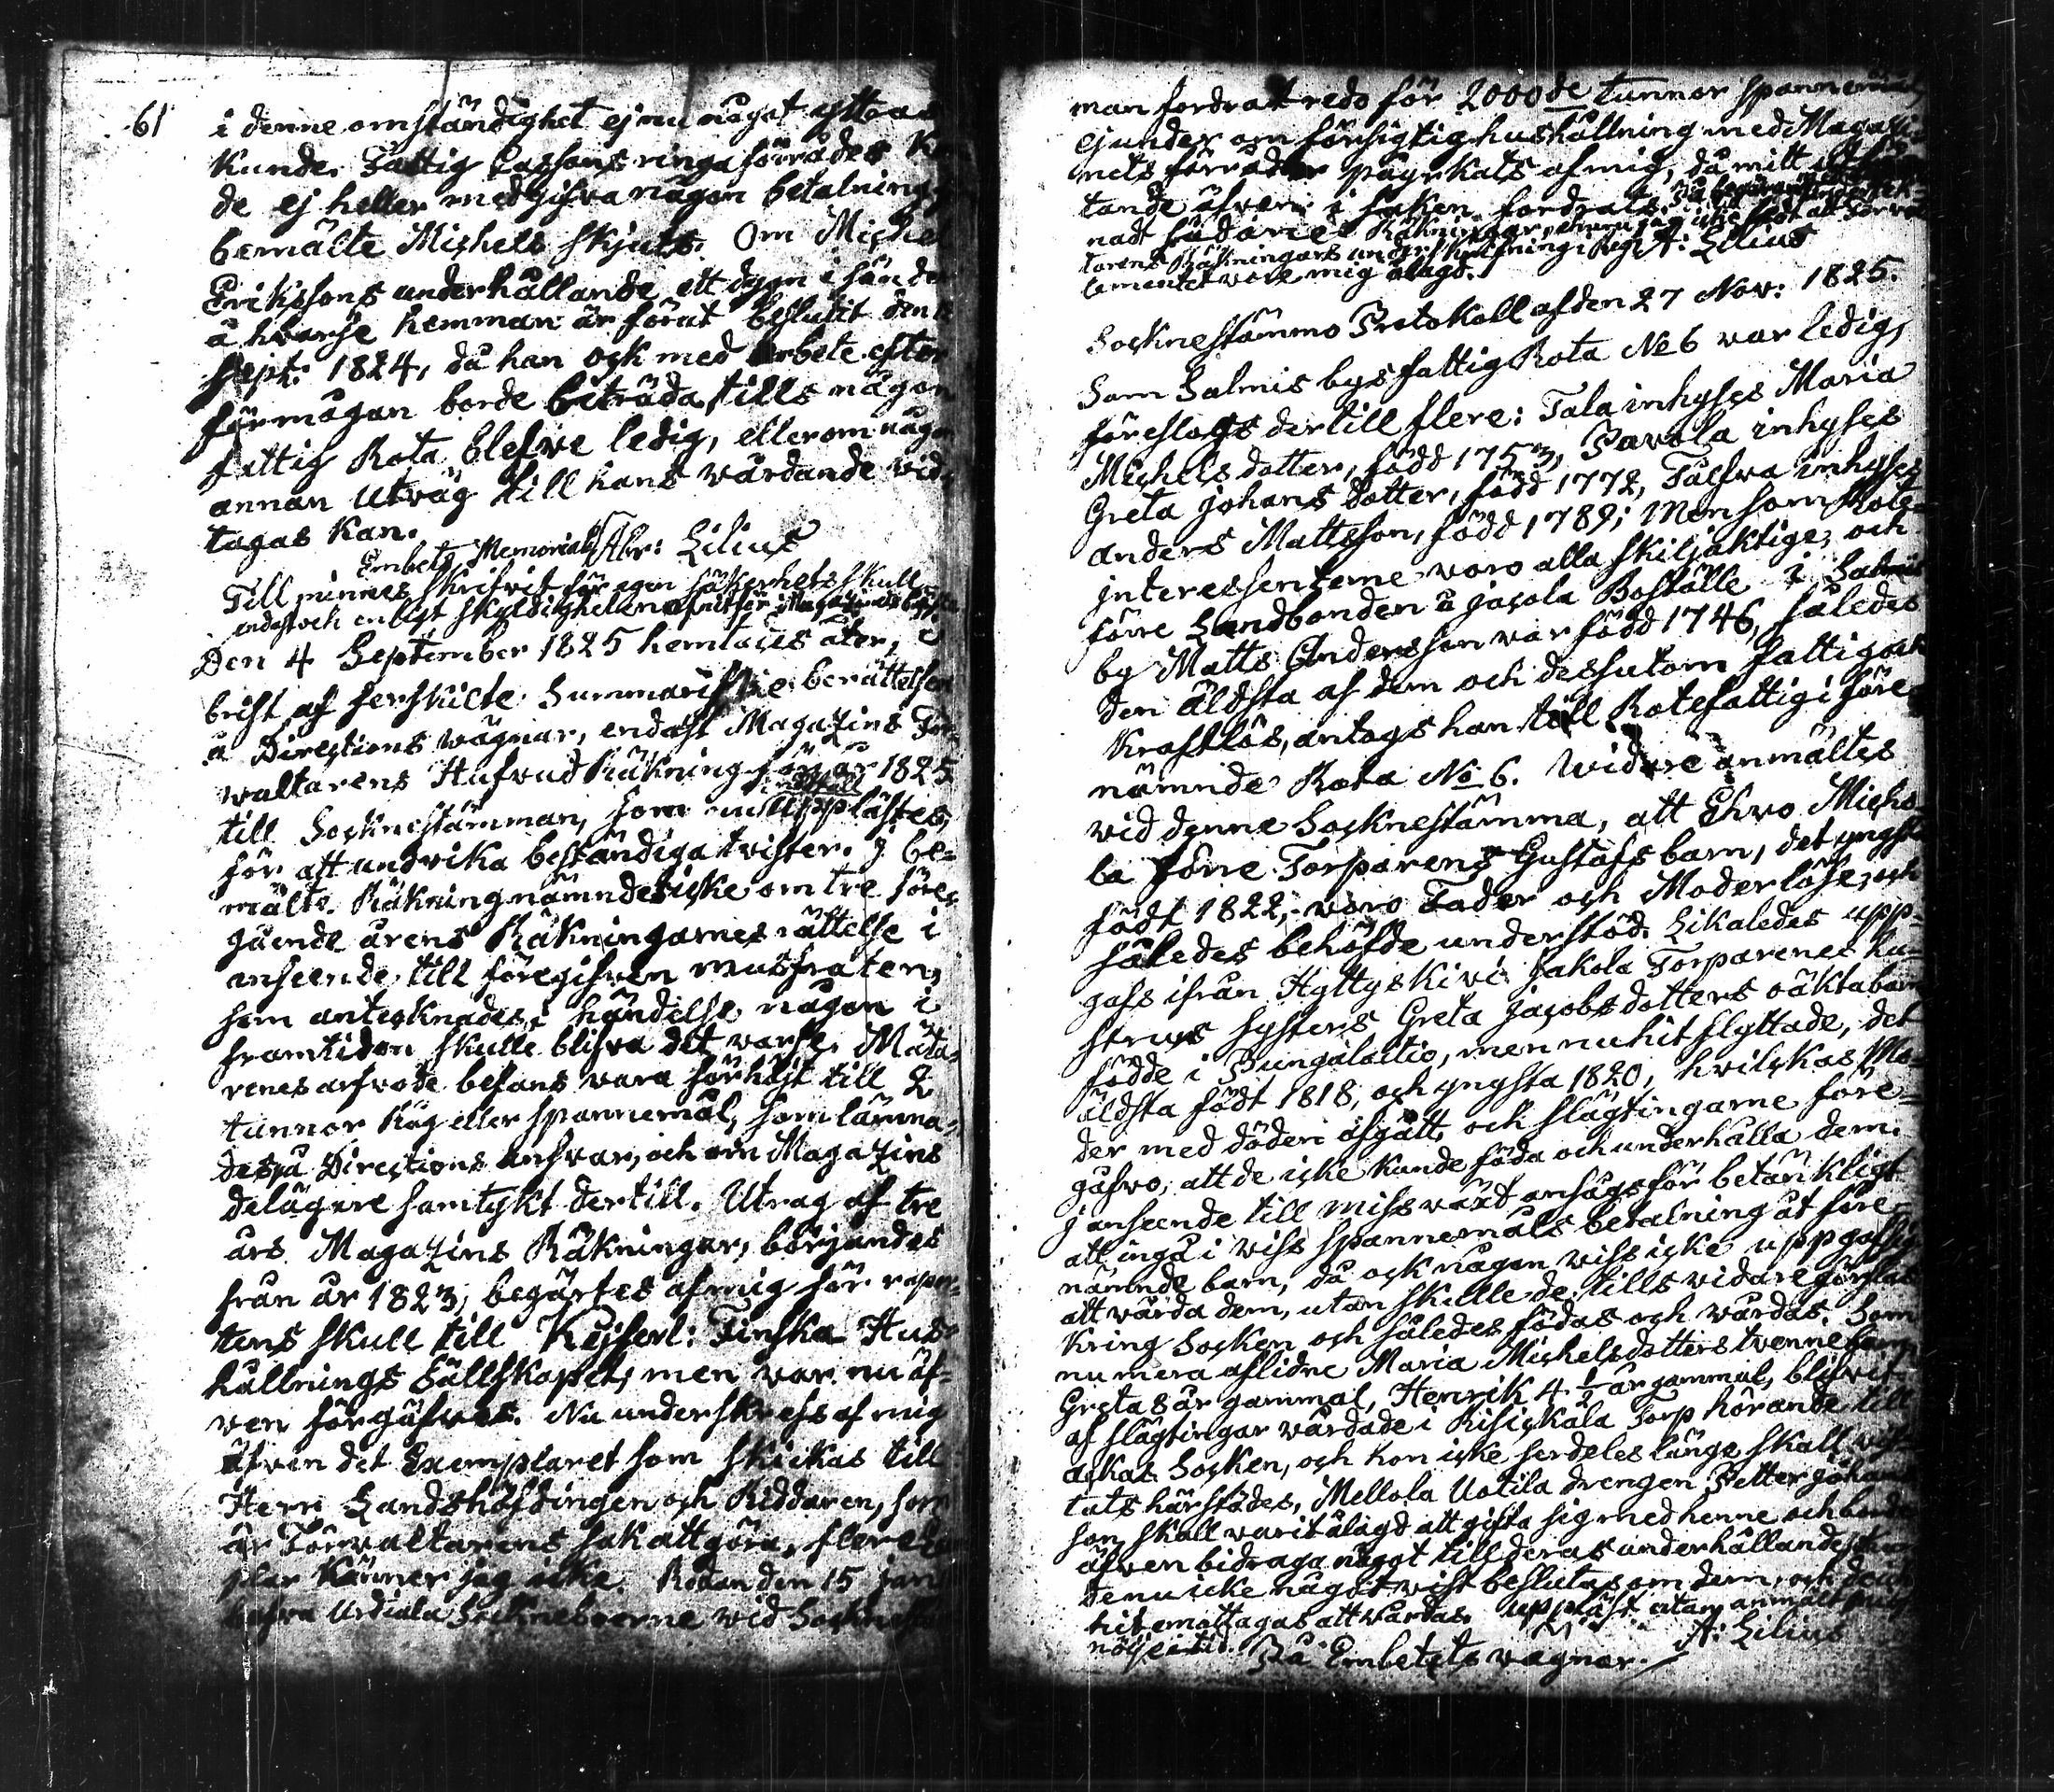 61
i denne omständighet ej nu något yttras
kunde. Fattig Cassans ringa förrådes
de ej heller medgifva någon betalning
bemälte Michels skjuts. Om Michel
Erikssons underhållande ett dygn i sänder
å hvarje hemman är förut beslutit den
Sept: 1824, då han ock med arbete efter
förmågan borde biträda, tills någon
fattig Rota blefve ledig, eller om någon
annan utväg till hans vårdande vid-
tagas kan.
Embets Memorial Abr: Lilius
Till minnes skrifvit för egen säkerhets skull
endast och enligt skyldigheten
Den 4 September 1825 hemtades åter, i
brist af serskilte Summariske berättelser
å Directions vägnar, endast Magazins För-
waltarens Hufvud Räkning för år 1825
till Socknestämman, som upplästes,
för att undvika beständiga tvister. I be-
mälte Räkning nämndes icke om tre före-
gående årens Räkningarnes rättelse i
anseende till föregifven
som antecknades, i händelse någon i
framtiden skulle blifva det varse. Mäta-
renes arfvode befans vara förhöjt till 2
tunnor Råg eller spannemål, som lämna-
des på Directions ansvar, och om Magazins
delägare samtykt dertill. Utrag af tre
års Magazins Räkningar, börjandes
från år 1823, begärtes af mig för rappor-
tens skull till Kejserl: Finska Hus-
hållnings Sällskapet, men var nu äf-
ven förgäfves. Nu underskrefs af mig
äfven det Exemplaret som skickas till
Herr Landshöfdingen och Riddaren, som
är Förvaltarens sak att göra, flere
känner jag icke. Redan den 15
Urdiala Sockneboerne vid
man fordrat redo för 2000de tunnor spannemål
ej under om försigtig hushållning med Magazi-
nets förråder påyrkats af mig, då mitt
tande äfven i socken fordrats.
nadt sådane Räkningar,
torens Räkningars underskrifning A: Lilius
vore mig ålagd.
Socknestämmo Protokoll af den 27 Nov: 1825.
Som Salmis bys fattig Rota No 6 var ledig,
föreslogs dertill flere: Tala inhyses Maria
Michelsdotter, född 1753, Pavola inhyses
Greta Johansdotter, född 1772, inhyses
Anders Mattsson, född 1789; Men som Rote-
interessenterne voro alla skiljaktige, och
förre Landbonden å Jacola Boställe i Salmis
by Matts Andersson var född 1746, således
den äldsta af dem och dessutom fattig och
kraftlös, antogs han till Rotefattig i före-
nämnde Rota No 6. Widare anmältes
vid denne Socknestämma, att
förre Torparens Gustafs barn, det yngsta
födt 1822, voro Fader och Moderlöse, och
således behöfde understöd. Likaledes upp-
gafs ifrån Hyttyskivi Jakola Torparenes hu-
strus systers Greta Jacobsdotters oäkta barn
födde i Pungalaitio, men nu hit flyttade, det
äldsta födt 1818, och yngsta 1820, hvilckas Mo-
der med döden afgått, och slägtingarne före-
gåfvo, att de icke kunde föda och underhålla dem.
I anseende till missväxt ansågs för betänkligt
att ingå i viss spannemåls betalning åt före-
nämnde barn, då ock någon viss icke uppgafs
att vårda dem, utan skulle de tills vidare
kring Socken och således födas och vårdas. Som
numera aflidne Maria Michelsdotters tvenne barn
Greta år gammal, Henrik 4 1/2 år gammal, blifvit
af slägtingar vårdade i Risickala Torp hörande till
Ackas Socken, och hon icke serdeles länge skall
tats härstädes, Mellola Uotila drengen Petter Johan-
son skall varit ålagd att gifta sig med henne och borde
äfven bidraga något till deras underhållande,
de nu icke något vist beslutas om dem, och
hit emottagas att vårdas. uppläst utan anmält
nöje A: Lilius
På Embetets vägnar.